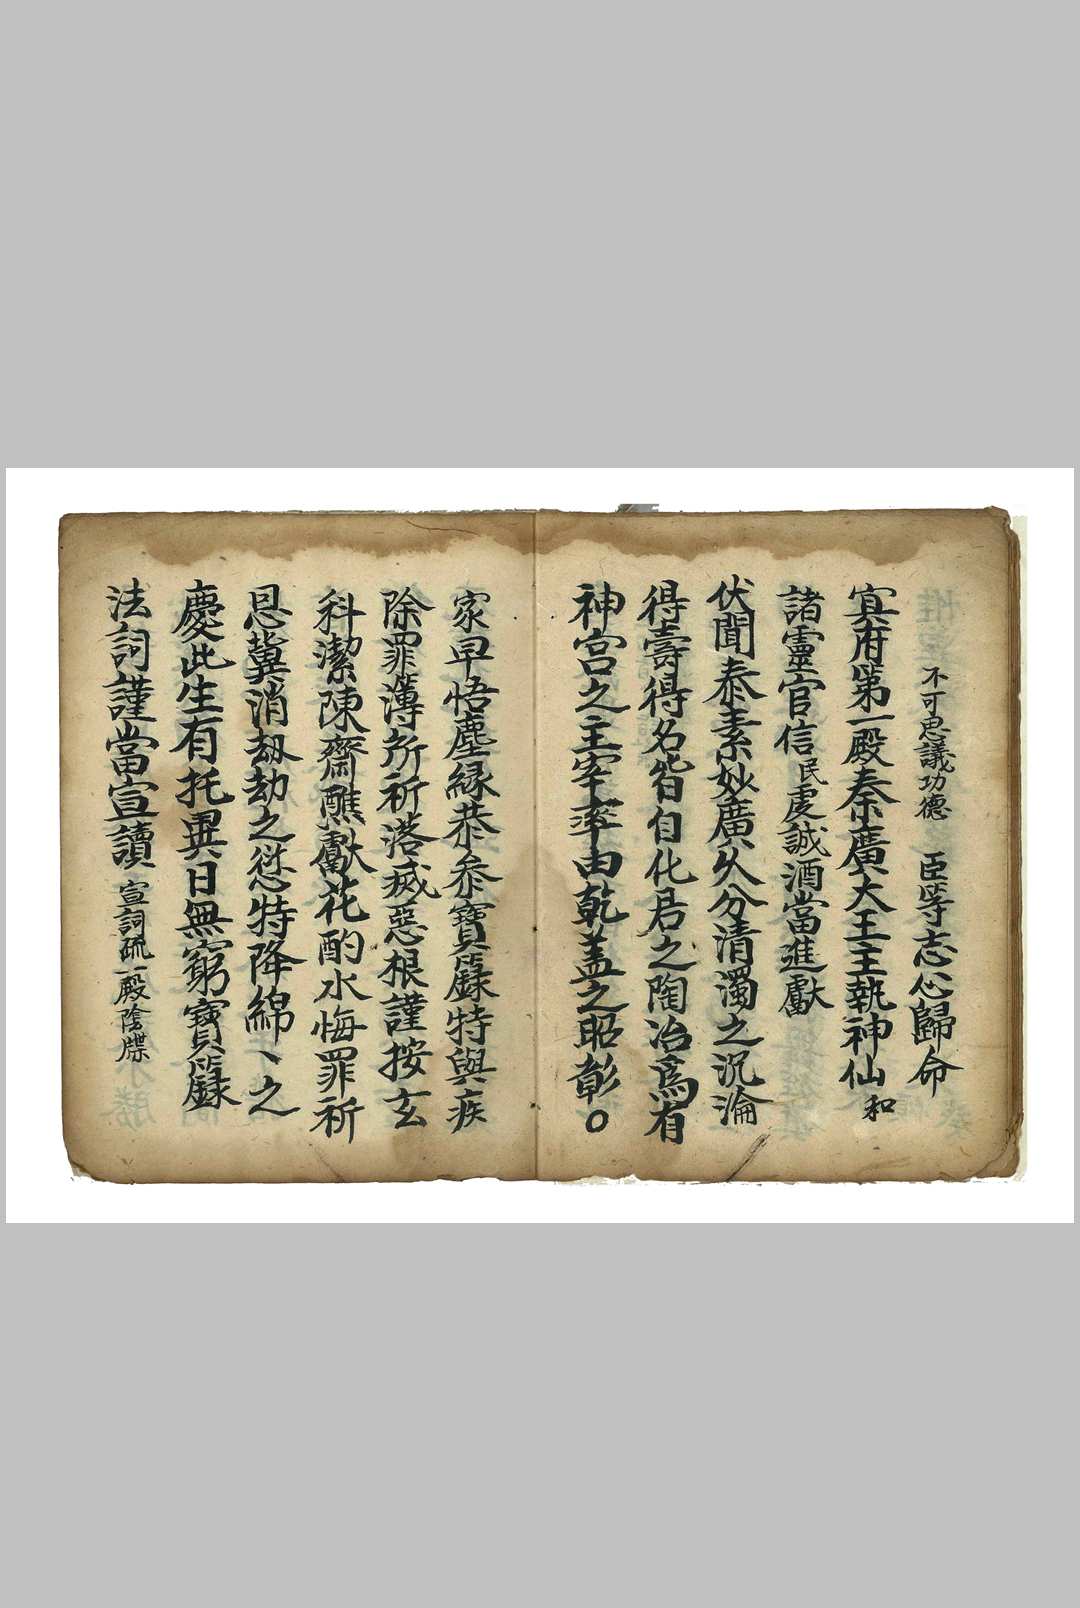 不可思議功德 臣等志心歸命
㝠府第一殿秦廣大王王執神仙和
諸靈官信民虔誠酒當進獻
伏聞泰素妙廣久分清濁之沉淪
得壽得名皆自化君之陶冶爲有
神宫之主宰率由乾盖之昭彰○
家早悟塵縁恭叅寶籙特與疾
除罪薄所祈落滅惡根謹按玄
科潔陳齋醮獻花酌水悔罪祈
恩冀消刼劫之愆特降綿丶之
慶此生有托異日無窮寶籙
法詞謹當宣讀 宣詞疏一殿隂牒